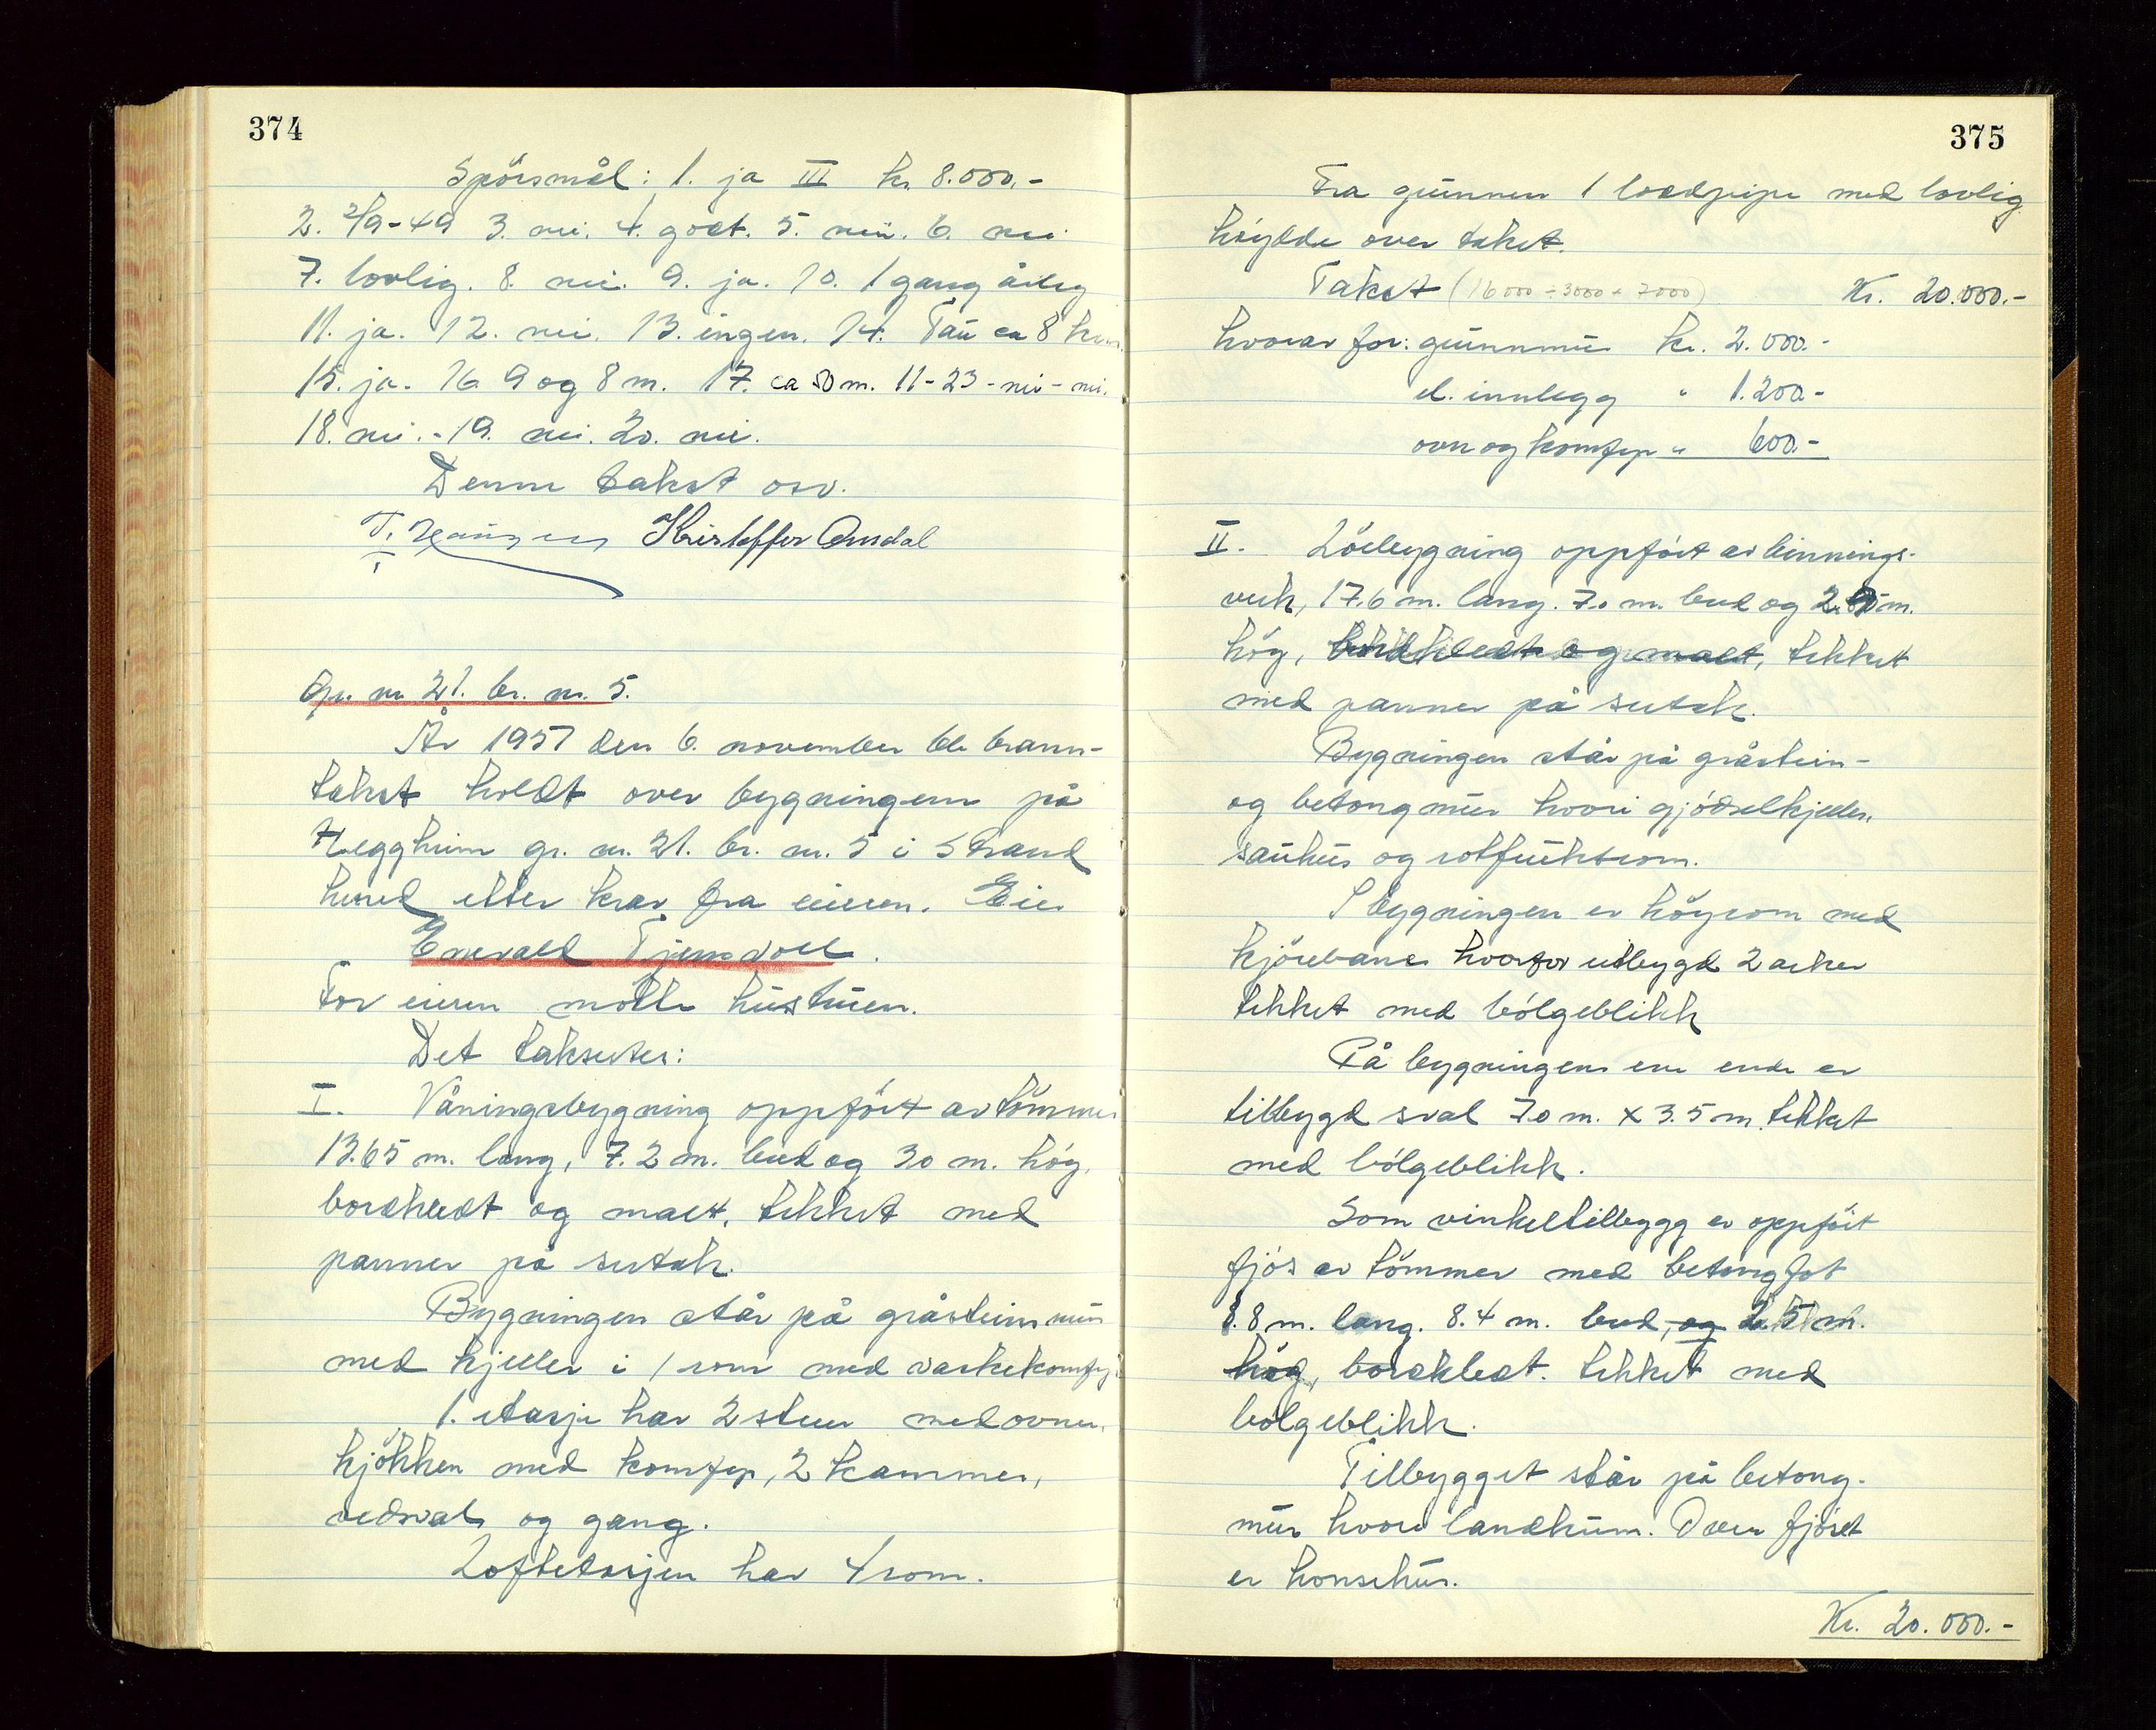 374
Spörsmål: 1. ja III kr. 8.000.-
2. 2/9-49 3. nei. 4. godt. 5. nei. 6. nei
7. lovlig. 8. nei. 9. ja. 10. 1 gang årleg
11. ja. 12. nei. 13. ingen. 14. Tau ca 8 km.
15. ja. 16. 9 og 8 m. 17. ca 50 m. 11-23-nei-nei.
18. nei.-19. nei. 20. nei.
Denne takst osv.
Kristoffer Amdal
Gr. nr. 21. br. nr. 5.
År 1957 den 6. november ble brann-
takst holdt over bygningene på
Heggheim gr. nr. 21. br. nr. 5 i Strand
herred etter krav fra eieren. Eier
Enevald Tjensvoll.
For eieren møtte hustruen.
Det takseres:
I. Våningsbygning oppført av tömmer
13.65 m. lang, 7.2 m. bred og 3.0 m. hög,
bordkledt og malt, tekket med
panner på sutak.
Bygningen står på gråsteinsmur
med kjeller i 1 rom med vaskekomfyr
1. etasje har 2 stuer med ovner,
kjökken med komfyr, 2 kammer,
vedsval og gang.
Loftetasjen har 4 rom.
375
Fra grunnen 1 loddpipe med lovlig
höyde over taket.
Takst (16000 ÷ 3000 + 7000) Kr. 20.000.-
hvorav for: grunnmur kr. 2.000.-
el. innlegg " 1.200.-
ovn og komfyr " 600.-
II. Löebygning oppfört av binnings-
verk, 17.6 m. lang. 7.0 m. bred og m.
hög, bordkledt og malt, tekket
med panner på sutak.
Bygningen står på gråstein-
og betongmur hvori gjödselkjeller,
sauhus og rotfruktrom.
I bygningen er höyrom med
kjörebane hvorfor utbygd 2 arker
tekket med bölgeblikk
På bygningens ene ende er
tilbygd sval 7.0 m. x 3.5 m. tekket
med bölgeblikk.
Som vinkeltilbygg er oppfört
fjös av tömmer med betongfot
8.8 m. lang. 8.4 m. bred, og 2.5 m.
hög, bordkledt. tekket med
bölgeblikk.
Tilbygget står på betong-
mur hvori landkum. Over fjöset
er hönsehus.
Kr. 20.000.-